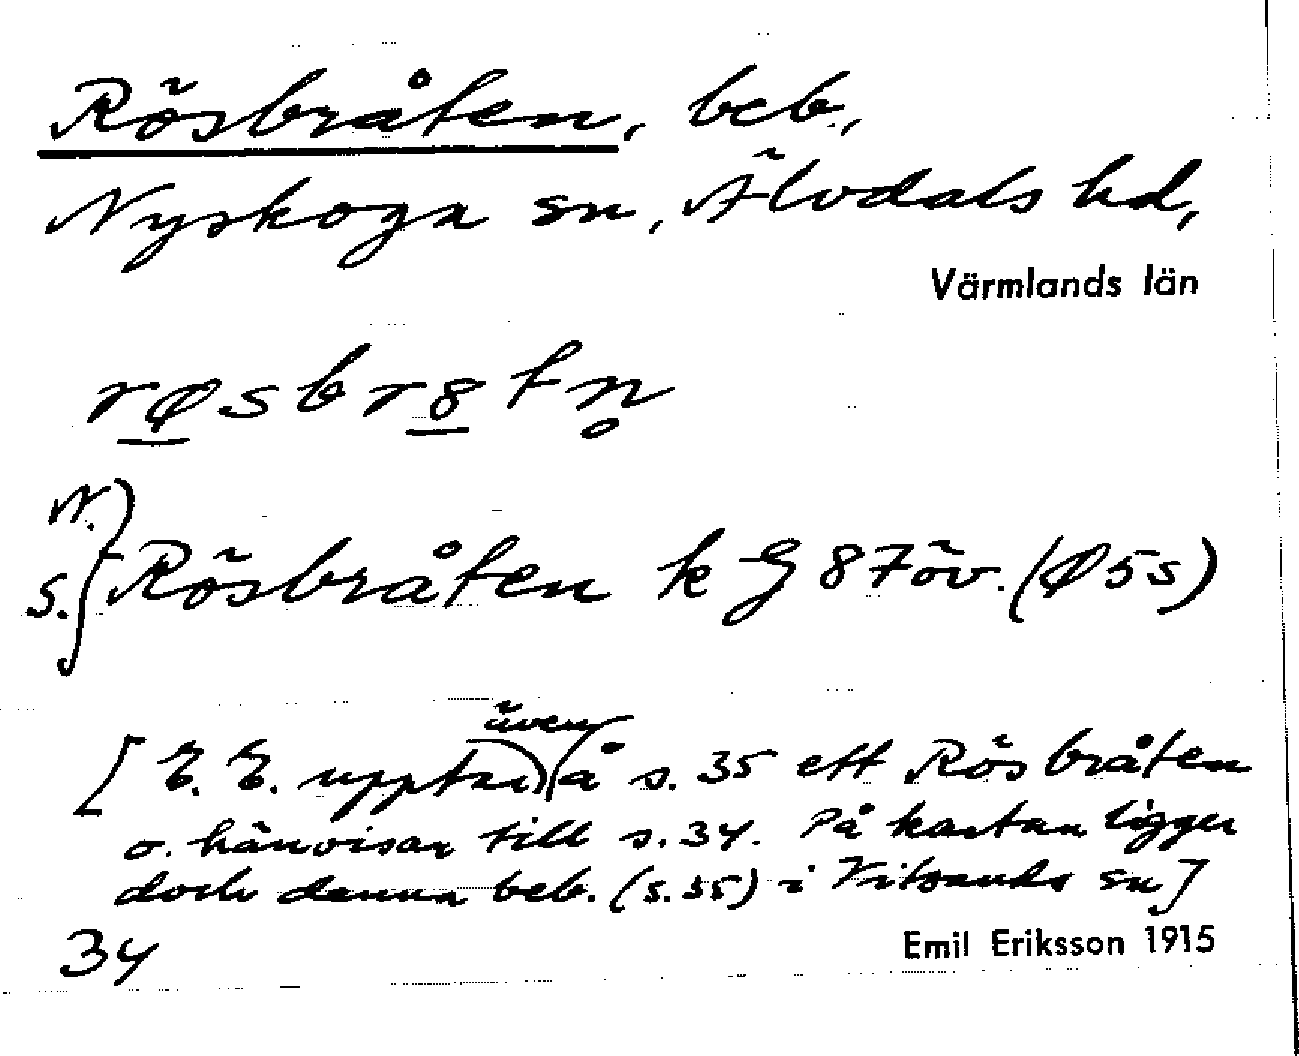 Rösbråten, beb.,
Nyskoga sn, Älvdals hd,
Värmlands län
røsbr8tn̥
N.
S. } Rösbråten k G 87öv. (Ø5s)
även
[E. E. upptar å s. 35 ett Rösbråten
o. hänvisar till s. 34. På kartan ligger
dock denna beb. (s. 35) i Vitsands sn]
34
Emil Eriksson 1915